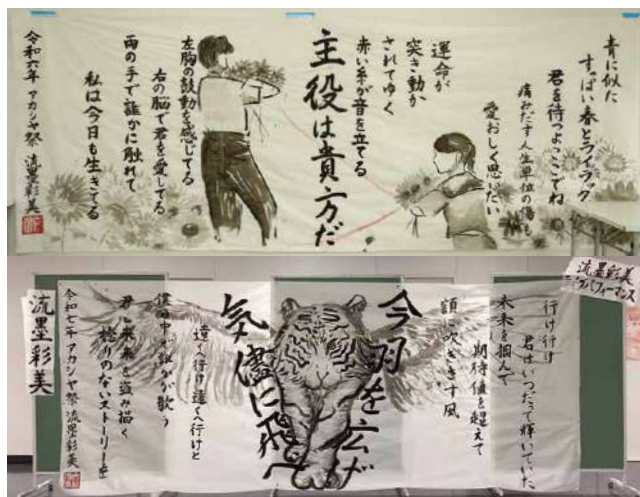 青に似た
すっぱい春とライラック
君を待つよここでね
痛みだす人生単位の傷も
愛おしく思いたい
主役は貴方だ
運命が
突き動か
されてゆく
赤い糸が音を立てる
左胸の鼓動を感じてる
右の脳で君を愛してる
両の手で誰かに触れて
私は今日も生きてる
令和六年 アカシヤ祭 流墨彩美
流墨彩美
パフォーマンス
行け行け
君はいつだって輝いていた
未来を掴んで
期待値を超えて
額に吹きさす風
今羽を広げ
気儘に飛べ
遠くへ行け遠くへ行けと
僕の中で誰かが歌う
君と未来を盗み描く
捻りのないストーリーを
令和七年 アカシヤ祭 流墨彩美
流墨彩美